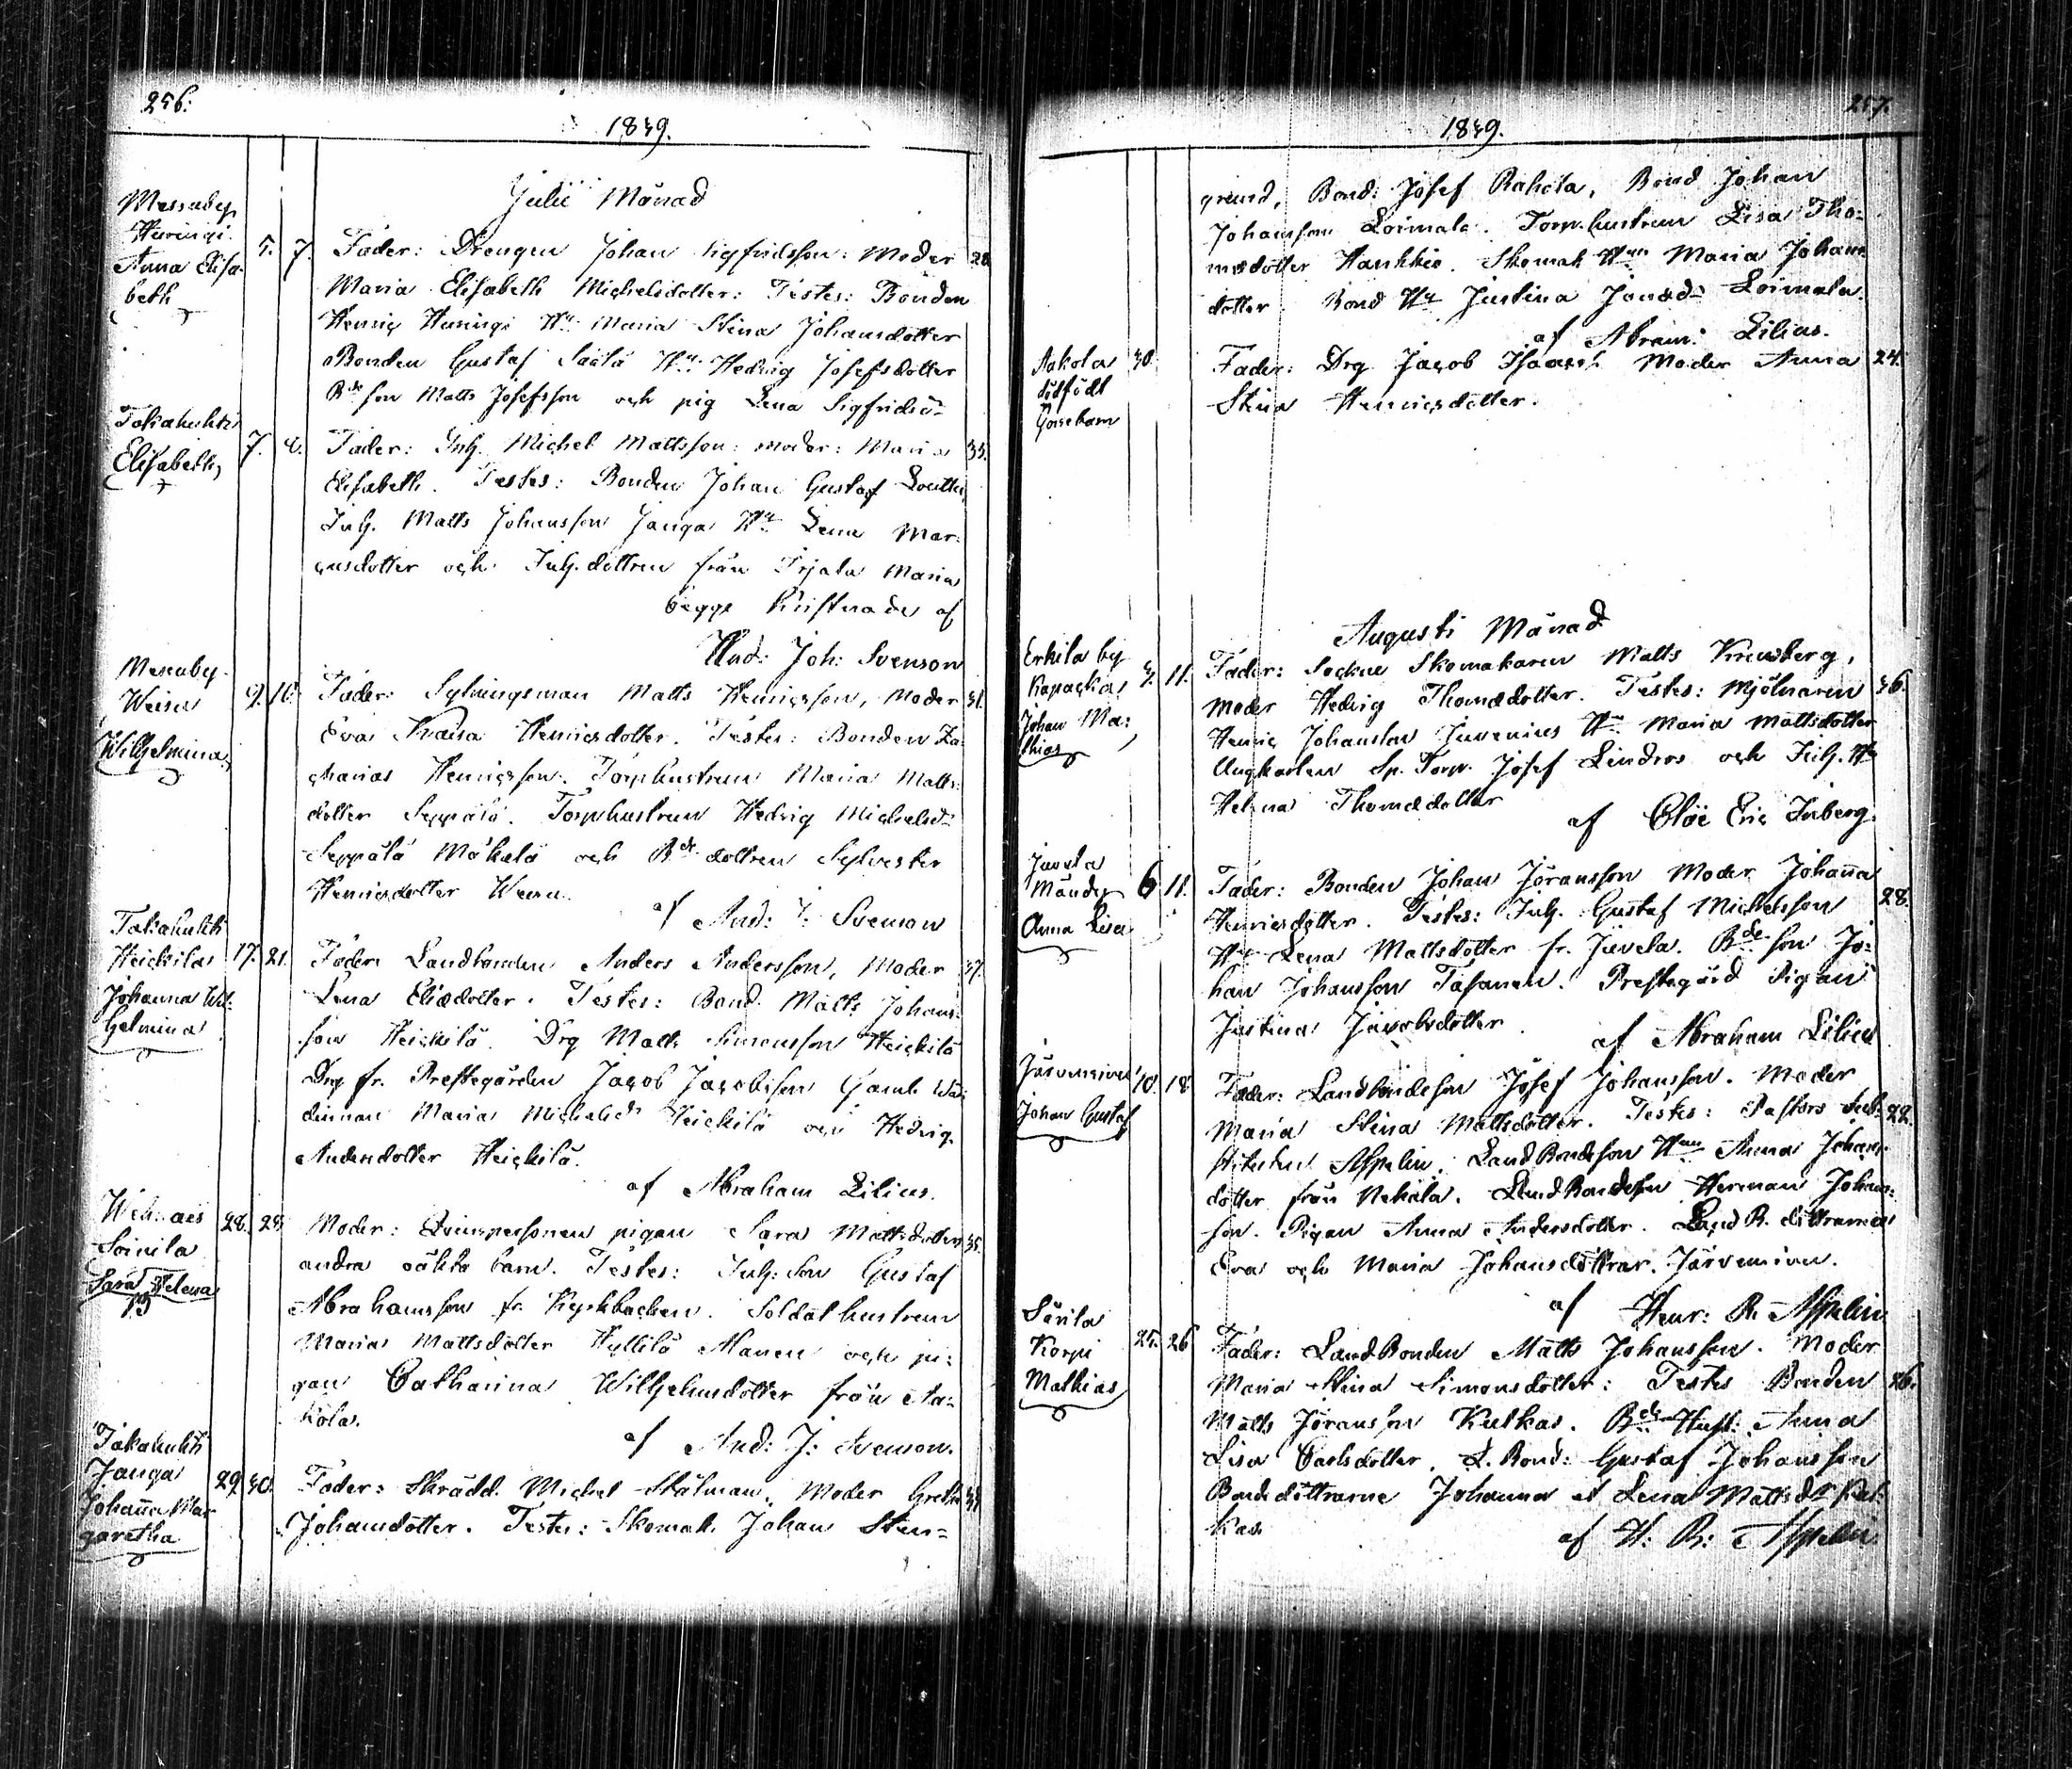 256.
1849.
Julii Månad
Messuby
Huringi
Anna Elisa-
beth
5. 7. Fader: Drengen Johan Sigfridsson: Moder 28
Maria Elisabeth Michelsdotter: Testes: Bonden
Henric Huringi Hu Maria Stina Johansdotter
Bonden Gustaf Hu Hedvig Josefsdotter
Bde son Matts Josefsson och pig Lena Sigfrids d-
Takahuhti
Elisabeth
7. 8. Fader: Inh. Michel Mattsson: moder: Maria 35.
Elisabeth. Testes: Bonden Johan Gustaf
Inh. Matts Johansson Janga Hu Lena Mar-
cusdotter och Inh. dottren från Irjala Maria
begge Kristnade af
And: Joh: Svenson
Messuby
Weisu
Wilhelmina
9. 10. Fader: Sytningsman Matts Henricsson, Moder 31.
Eva Kaisa Henricsdotter. Testes: Bonden Za-
charias Henricsson. Torp hustrun Maria Matts-
dotter Seppälä. Torp hustrun Hedvig Michelsd-
Seppälä Mäkelä och Bde dottren Sylvester
Henricsdotter Weisu.
af And: J. Svenson
Takahuhti
Heickilä
Johanna Wil-
helmina
17. 21. Fader Landbonden Anders Andersson, Moder 37.
Lena Eliædotter. Testes: Bond. Matts Johans-
son Heickilä. Drg Matts Simonsson Heickilä
Drg fr. Prestegården Jacob Jacobsson Gamb Wär-
dinnan Maria Michelsd- Heickilä och Hedvig
Andersdotter Heickilä.
af Abraham Lilius.
Soinila
Sara Helena
28. 29. Moder: Qvinspersonen pigan Sara Mattsdotters 35.
andra oäkta barn. Testes: Inh: Son Gustaf
Abrahamsson fr. Kyrkbacken. Soldat hustrun
Maria Mattsdotter Hyllilä Alanen och pi-
gan Catharina Wilhelmsdotter från Aa-
kola.
af And: J: Svenson.
Takahuhti
Janga
Johanna Mar
garetha
29. 30. Fader: Skrädd. Michel Stålman. Moder Greta
Johansdotter. Testes: Skomak. Johan Sten-
257.
1849.
grund, Bond: Josef Rahola, Bond Johan
Johansson Loimala. Torp. hustrun Lisa Tho-
mædotter Hankkio. Skomak Hun Maria Johans
dotter. Bond Hu Justina Jonæd- Loimala.
af Abram: Lilius.
Aakola
dödfödt
Gossebarn
30. Fader: Drg Jacob Isaacss. Moder Anna 24.
Stina Henricsdotter.
Augusti Månad
Erkilä by
Johan Ma-
thias
11. Fader: Sockne Skomakaren Matts Krensberg, 36.
Moder Hedvig Thomædotter. Testes: Mjölnaren
Henric Johansson Juvenius Hu Maria Mattsdotter
Ungkarlen Sp. Torp. Josef Lindros och Inh. Hu
Helena Thomædotter
af Cloc Eric Inberg.
Juvela
Anna Lisa
6 11. Fader: Bonden Johan Jöransson Moder Johanna 28.
Henricsdotter. Testes: Inh. Gustaf Michelsson
Hu Lena Mattsdotter fr. Juvela. Bde son Jo-
han Johansson Tasanen. Prestegård Pigan
Justina Jacobsdotter.
af Abraham Lilius
Järvensivu
Johan Gustaf
10. 18 Fader: Landbondeson Josef Johansson. Moder
Maria Stina Mattsdotter. Testes: Pastors Sub- 22.
stituten Aspelin. Land Bondeson Hun Anna Johans-
dotter från Nekala. Land Bondeson Herman Johans-
son. Pigan Anna Andersdotter. Land B. döttrarna
Eva och Maria Johansdöttrar. Järvensivu.
af Henr: R. Aspelin
Särilä
Korpi
Mathias
25. 26 Fader: Land Bonden Matts Johansson. Moder
Maria Stina Simonsdotter: Testes Bonden 26.
Matts Jöransson Kulkas. Bde Hust: Anna
Lisa Carlsdotter. L. Bond: Gustaf Johansson
Bonde döttrarne Johanna et Lena Mattsdr Kul-
kas.
af H: R: Aspelin